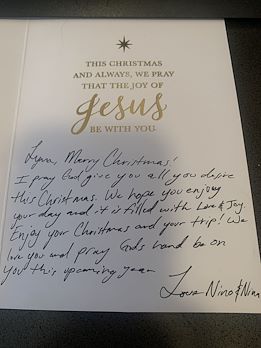 THIS CHRISTMAS
AND ALWAYS, WE PRAY
THAT THE JOY OF
Jesus
BE WITH YOU.
Lynn, Merry Christmas!
I pray God give you all you desire
this Christmas. We hope you enjoy
your day and it is filled with Love & Joy.
Enjoy your Christmas and your trip! We
love you and pray Gods hand be on
you this upcoming year.
Love Nino & Nina